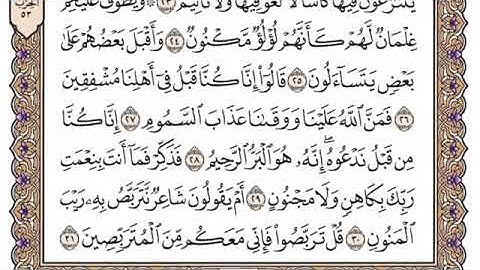 يَتَنَازَعُونَ فِيهَا كَأْسًا لَّا لَغْوٌ فِيهَا وَلَا تَأْثِيمٌ ٢٣ ۞ وَيَطُوفُ عَلَيْهِمْ
غِلْمَانٌ لَّهُمْ كَأَنَّهُمْ لُؤْلُؤٌ مَّكْنُونٌ ٢٤ وَأَقْبَلَ بَعْضُهُمْ عَلَىٰ
بَعْضٍ يَتَسَاءَلُونَ ٢٥ قَالُوا إِنَّا كُنَّا قَبْلُ فِي أَهْلِنَا مُشْفِقِينَ
٢٦ فَمَنَّ اللَّهُ عَلَيْنَا وَوَقَىٰنَا عَذَابَ السَّمُومِ ٢٧ إِنَّا كُنَّا
مِن قَبْلُ نَدْعُوهُ إِنَّهُ هُوَ الْبَرُّ الرَّحِيمُ ٢٨ فَذَكِّرْ فَمَا أَنتَ بِنِعْمَتِ
رَبِّكَ بِكَاهِنٍ وَلَا مَجْنُونٍ ٢٩ أَمْ يَقُولُونَ شَاعِرٌ نَّتَرَبَّصُ بِهِ رَيْبَ
الْمَنُونِ ٣٠ قُلْ تَرَبَّصُوا فَإِنِّي مَعَكُم مِّنَ الْمُتَرَبِّصِينَ ٣١
الحزب
٥٣